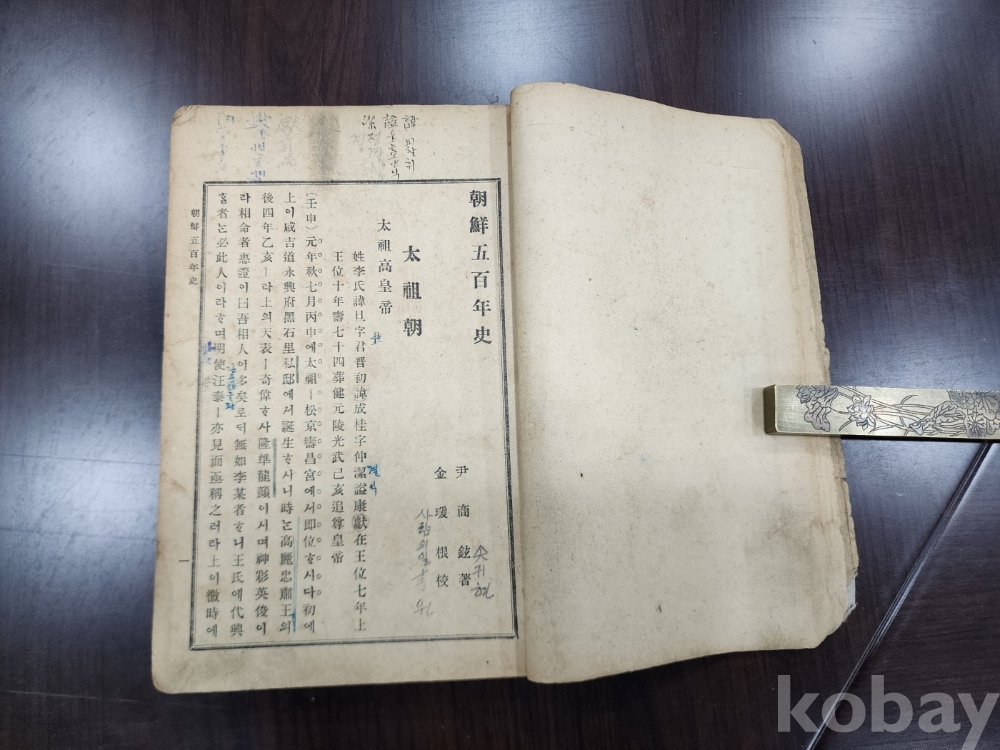 諱
朝鮮五百年史
尹商鉉著
金瑗根校
太祖朝
太祖高皇帝
姓李氏諱旦字君晋初諱成桂字仲潔謚康獻在王位七年上
王位十年壽七十四葬健元陵光武己亥追尊皇帝
(壬申)元年秋七月丙申에太祖ㅣ松京壽昌宮에셔即位ᄒᆞ시다初에
上이咸吉道永興府黑石里私邸에셔誕生ᄒᆞ사니時ᄂᆞᆫ高麗忠肅王의
後四年乙亥ㅣ라上의天表ㅣ奇偉ᄒᆞ사隆準龍顔이시며神彩英俊이
라相命者惠證이曰吾相人이多矣로ᄃᆡ無如李某者ᄒᆞ니王氏에代興
ᄒᆞᆯ者ᄂᆞᆫ必此人이라ᄒᆞ며明使汪泰ㅣ亦見而亟稱之러라上이微時에
朝鮮五百年史
一
kobay